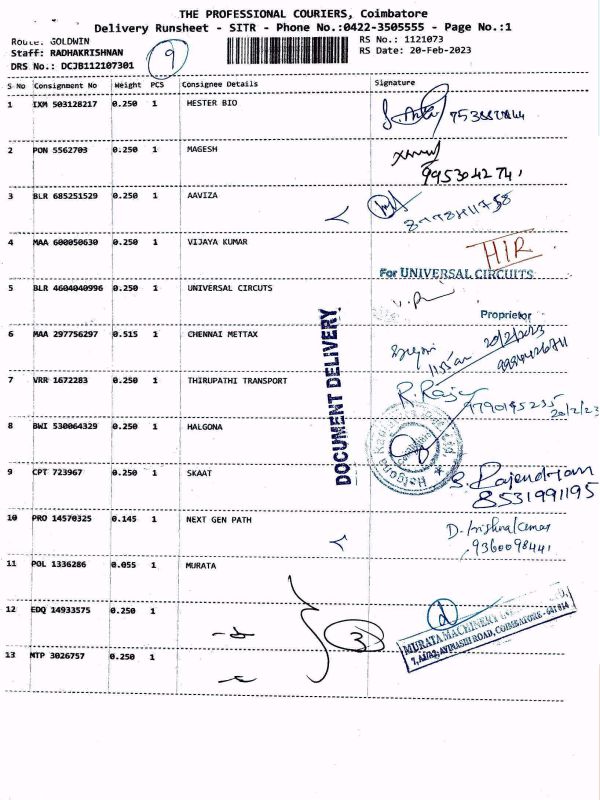 THE PROFESSIONAL COURIERS, Coimbatore
Delivery Runsheet - SITR - Phone No.:0422-3505555 - Page No.:1
Route: GOLDWIN
Staff: RADHAKRISHNAN
DRS No.: DCJB112107301
9
RS No.: 1121073
RS Date: 20-Feb-2023
S No Consignment No Weight PCS Consignee Details Signature
1 IXM 503128217 0.250 1 HESTER BIO
2 PON 5562703 0.250 1 MAGESH
9953042741
3 BLR 685251529 0.250 1 AAVIZA
4 MAA 600050630 0.250 1 VIJAYA KUMAR
HIR
For UNIVERSAL CIRCUITS
5 BLR 4604040996 0.250 1 UNIVERSAL CIRCUTS
Proprietor
6 MAA 297756297 0.515 1 CHENNAI METTAX
20/2/2023
7 VRR 1672283 0.250 1 THIRUPATHI TRANSPORT
R. Raja
9790195235
20/2/23
8 BWI 530064329 0.250 1 HALGONA
DOCUMENT DELIVERY
9 CPT 723967 0.250 1 SKAAT
S. Rajendran
8531991195
10 PRO 14570325 0.145 1 NEXT GEN PATH
9360098441
11 POL 1336286 0.055 1 MURATA
12 EDQ 14933575 0.250 1
3
MURATA MACHINERY
7, AVINASHI ROAD, COIMBATORE - 641 014
13 MTP 3026757 0.250 1